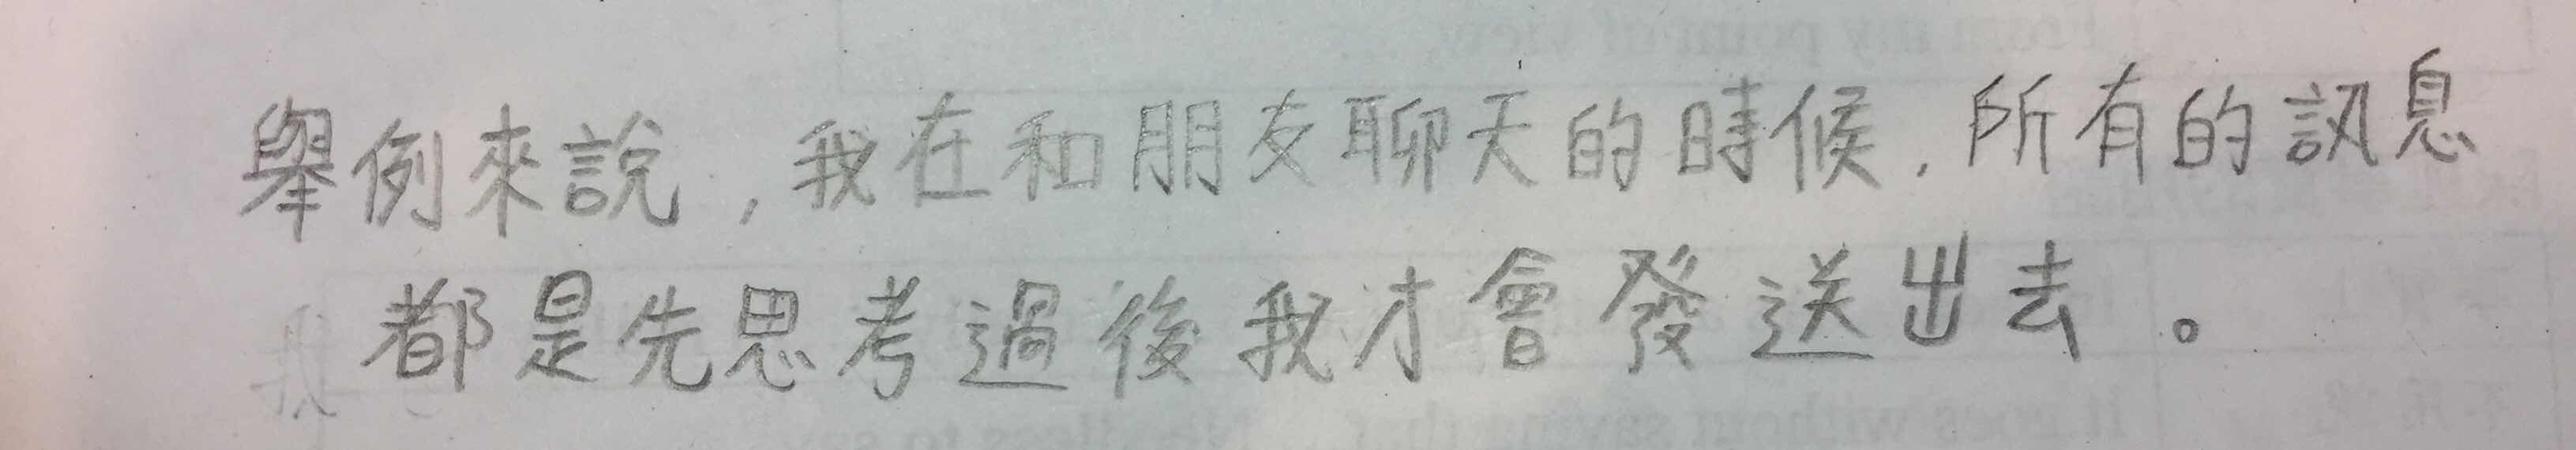 舉例來說，我在和朋友聊天的時候，所有的訊息
都是先思考過後我才會發送出去。